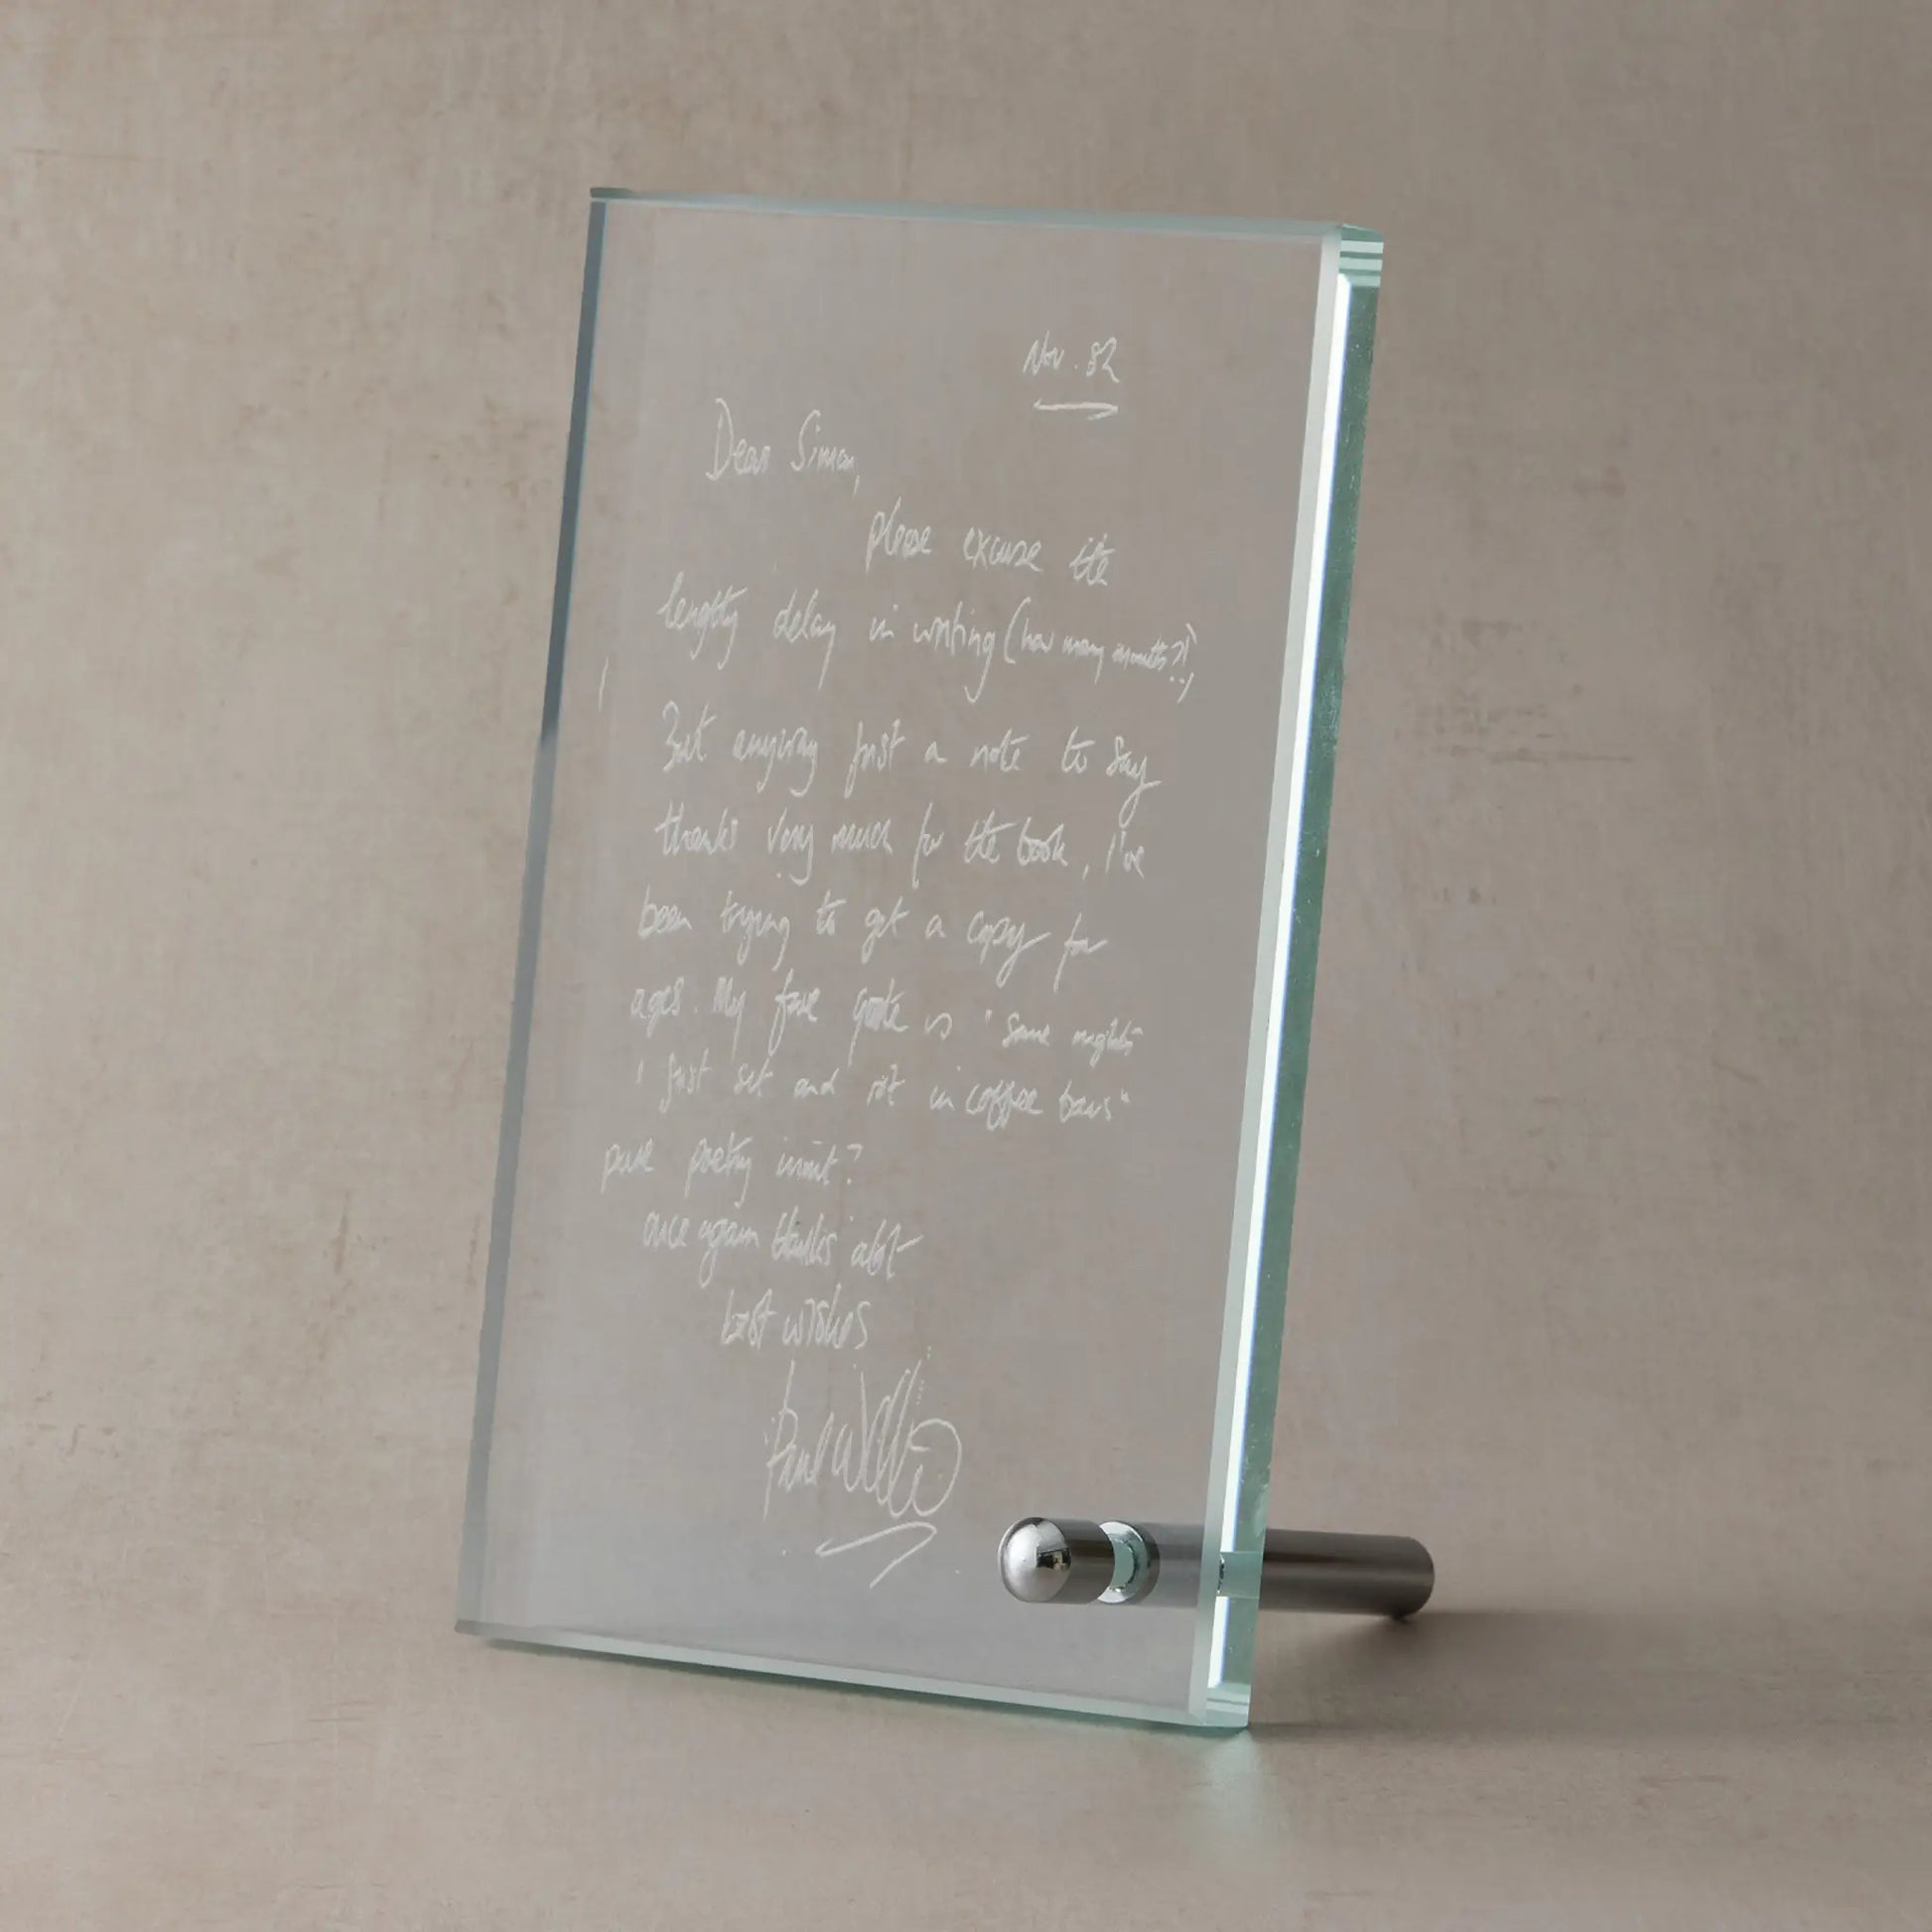 Nov. 82
Dear Simon,
please excuse the
lengthy delay in writing (how many months?!)
But anyway just a note to say
thanks very much for the book, I've
been trying to get a copy for
ages. My fave quote is "Some nights
I just sit and rot in coffee bars"
pure poetry innit?
once again thanks alot
best wishes
Paul